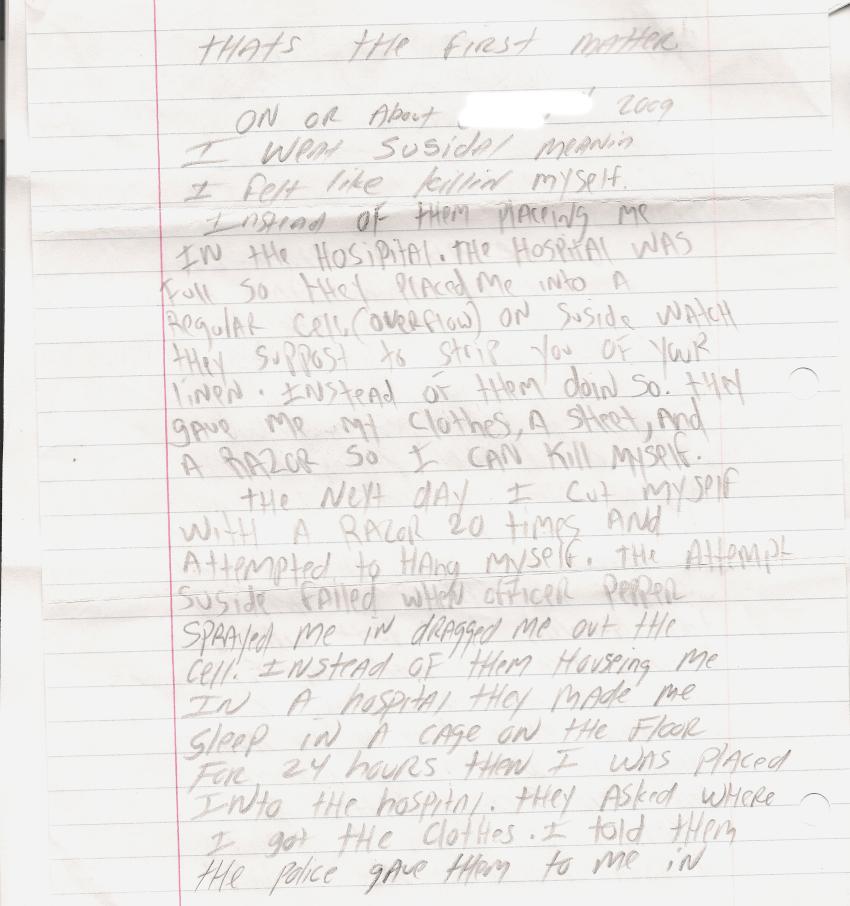 THATS THE FIRST MATTER
ON OR About 2009
I WENT SUSIDAL MEANIN
I felt like killin myself.
INstead OF tHEM PlACEING ME
IN tHE HOSiPitAl. tHE HOSPitAl WAS
Full SO tHEY PlACED ME INto A
REGulAR CEll, (OVERFlOW) ON SuSidE WAtCH
tHEY SuPPOSt to StRiP YOU OF YOUR
liNEN. INStEAd OF tHEM doiN SO. tHEY
gAVE ME MY ClOtHES, A SHEEt, ANd
A RAZOR SO I CAN Kill MYSElF.
tHE NEXt dAY I Cut MYSElF
WitH A RAZOR 20 tiMES ANd
AttEMPtEd to HANg MYSElF. tHE AttEMPt
SuSidE FAilEd WHEN OFFiCER PEPPER
SPRAYEd ME iN dRAggEd ME Out tHE
CEll. INStEAd OF tHEM HOuSEing ME
IN A hOSPitAl tHEY MAdE ME
SlEEP iN A CAgE ON tHE FlOOR
FOR 24 hOuRS tHEN I WAS PlACEd
INto tHE hOSPitAl. tHEY ASKEd WHERE
I gOt tHE ClOtHES. I tOld tHEM
tHE POliCE gAVE tHEM to ME iN